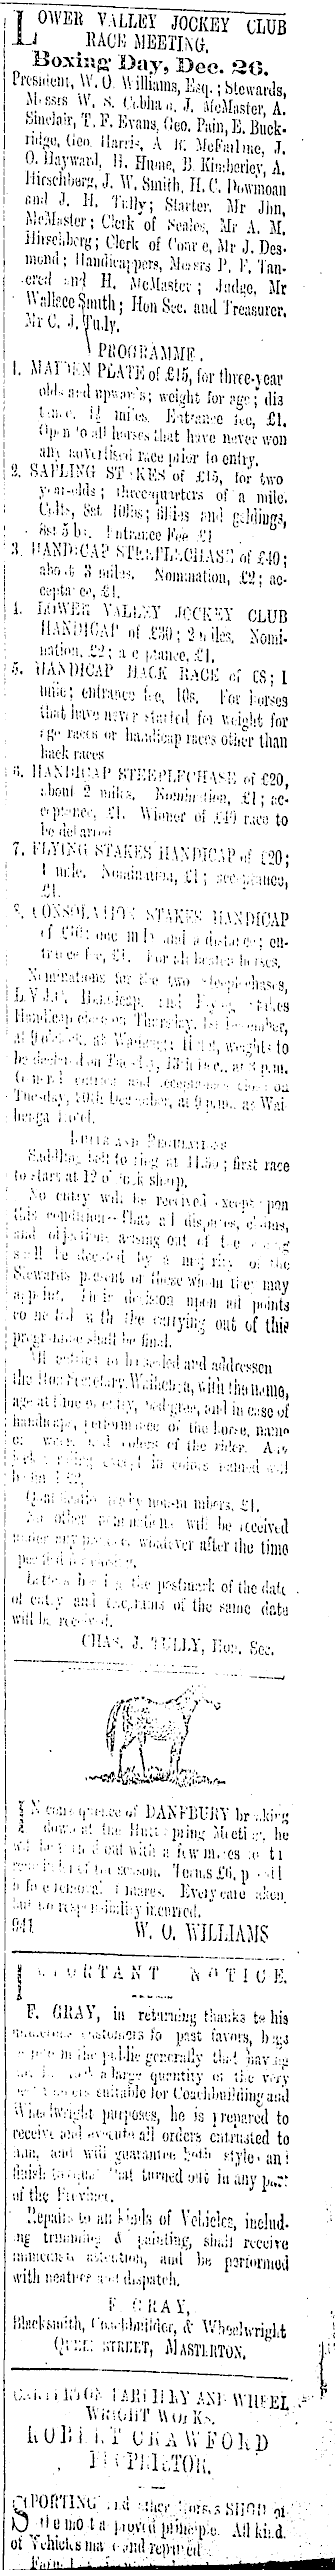 LOWER VALLEY JOCKEY CLUB
RACE MEETING,
Boxing Day, Dec. 26.
President, W. O. Williams, Esq.; Stewards,
Messrs W. S. Cobham, J. McMaster, A.
Sinclair, T. F. Evans, Geo. Pain, E. Buck-
ridge, Geo. Harris, A. R. McFarlane, J.
O. Hayward, H. Hume, B. Kimberley, A.
Hirschberg, J. W. Smith, H. C.
and J. H. Tully; Starter, Mr Jhn,
McMaster; Clerk of Scales, Mr A. M.
Hirschberg; Clerk of Course, Mr J. Des-
mond; Handicappers, Messrs P. F. Tan-
cred and H. McMaster; Judge, Mr
Wallace Smith; Hon Sec. and Treasurer,
Mr C. J. Tully.
PROGRAMME.
1. MAIDEN PLATE of £15, for three-year
olds and upwards; weight for age; dis
tance, 1½ miles. Entrance fee, £1.
Open to all horses that have never won
any advertised race prior to entry.
2. SAPLING STAKES of £15, for two
year-olds; three-quarters of a mile.
Colts, 8st 10lbs; fillies and geldings,
8st 5lbs. Entrance Fee £1
3. HANDICAP STEEPLECHASE of £40;
about 3 miles. Nomination, £2; ac-
ceptance, £1.
4. LOWER VALLEY JOCKEY CLUB
HANDICAP of £30; 2 miles. Nomi-
nation, £2; acceptance, £1.
5. HANDICAP HACK RACE of £8; 1
mile; entrance fee, 10s. For horses
that have never started for weight for
age races or handicap races other than
hack races
6. HANDICAP STEEPLECHASE of £20,
about 2 miles. Nomination, £1; ac-
ceptance, £1. Winner of £40 race to
be debarred
7. FLYING STAKES HANDICAP of £20;
1 mile. Nomination, £1; acceptance,
£1.
8. CONSOLATION STAKES HANDICAP
of £10; one mile and a distance; en-
trance fee, £1. For all beaten horses.
Nominations for the two steeplechases,
L.V.J.C. Handicap, and Flying Stakes
Handicap close on Thursday, 1st December,
at 9 o'clock, at Hotel, weights to
be declared on Tuesday, 13th Dec., at 8 p.m.
General entries and acceptances close on
Tuesday, December, at 9 p.m., at Wai-
Hotel.
RULES AND REGULATIONS
Saddling bell to ring at 11.30; first race
to start at 12 o'clock sharp.
No entry will be received except upon
this condition—That all disputes, claims,
and objections arising out of the racing
shall be decided by a majority of the
Stewards present or those whom they may
appoint. Their decision upon all points
connected with the carrying out of this
programme shall be final.
All entries to be sealed and addressed
the Hon Secretary, with the name,
age at time of entry, pedigree, and in case of
handicaps, performances of the horse, name
of owner, and colors of the rider. Any
Jockey riding except in colors named will
be fined £2.
Qualification by non-members, £1.
No other nominations will be received
under any pretence whatever after the time
specified for closing.
Letters bearing the postmark of the date
of entry and telegrams of the same date
will be received.
CHAS. J. TULLY, Hon. Sec.
IN consequence of DANEBURY breaking
down at the Hutt Spring Meeting, he
will be with a few mares
remainder of the season. Terms £6,
before removal of mares. Every care taken
but no responsibility incurred.
941 W. O. WILLIAMS
IMPORTANT NOTICE.
F. GRAY, in returning thanks to his
numerous customers for past favors, begs
to inform the public generally that having
a large quantity of the very
suitable for Coachbuilding and
Wheelwright purposes, he is prepared to
receive and execute all orders entrusted to
him, and will guarantee both style and
finish to equal that turned out in any part
of the Province.
Repairs to all kinds of Vehicles, includ-
ing trimming & painting, shall receive
immediate attention, and be performed
with neatness and dispatch.
F. GRAY,
Blacksmith, Coachbuilder, & Wheelwright
QUEEN STREET, MASTERTON.
CARTERTON FARRIERY AND WHEEL
WRIGHT WORKS.
ROBERT CRAWFORD
PROPRIETOR.
SPORTING and other Horses SHOD on
the most approved principle. All kinds
of Vehicles made and repaired